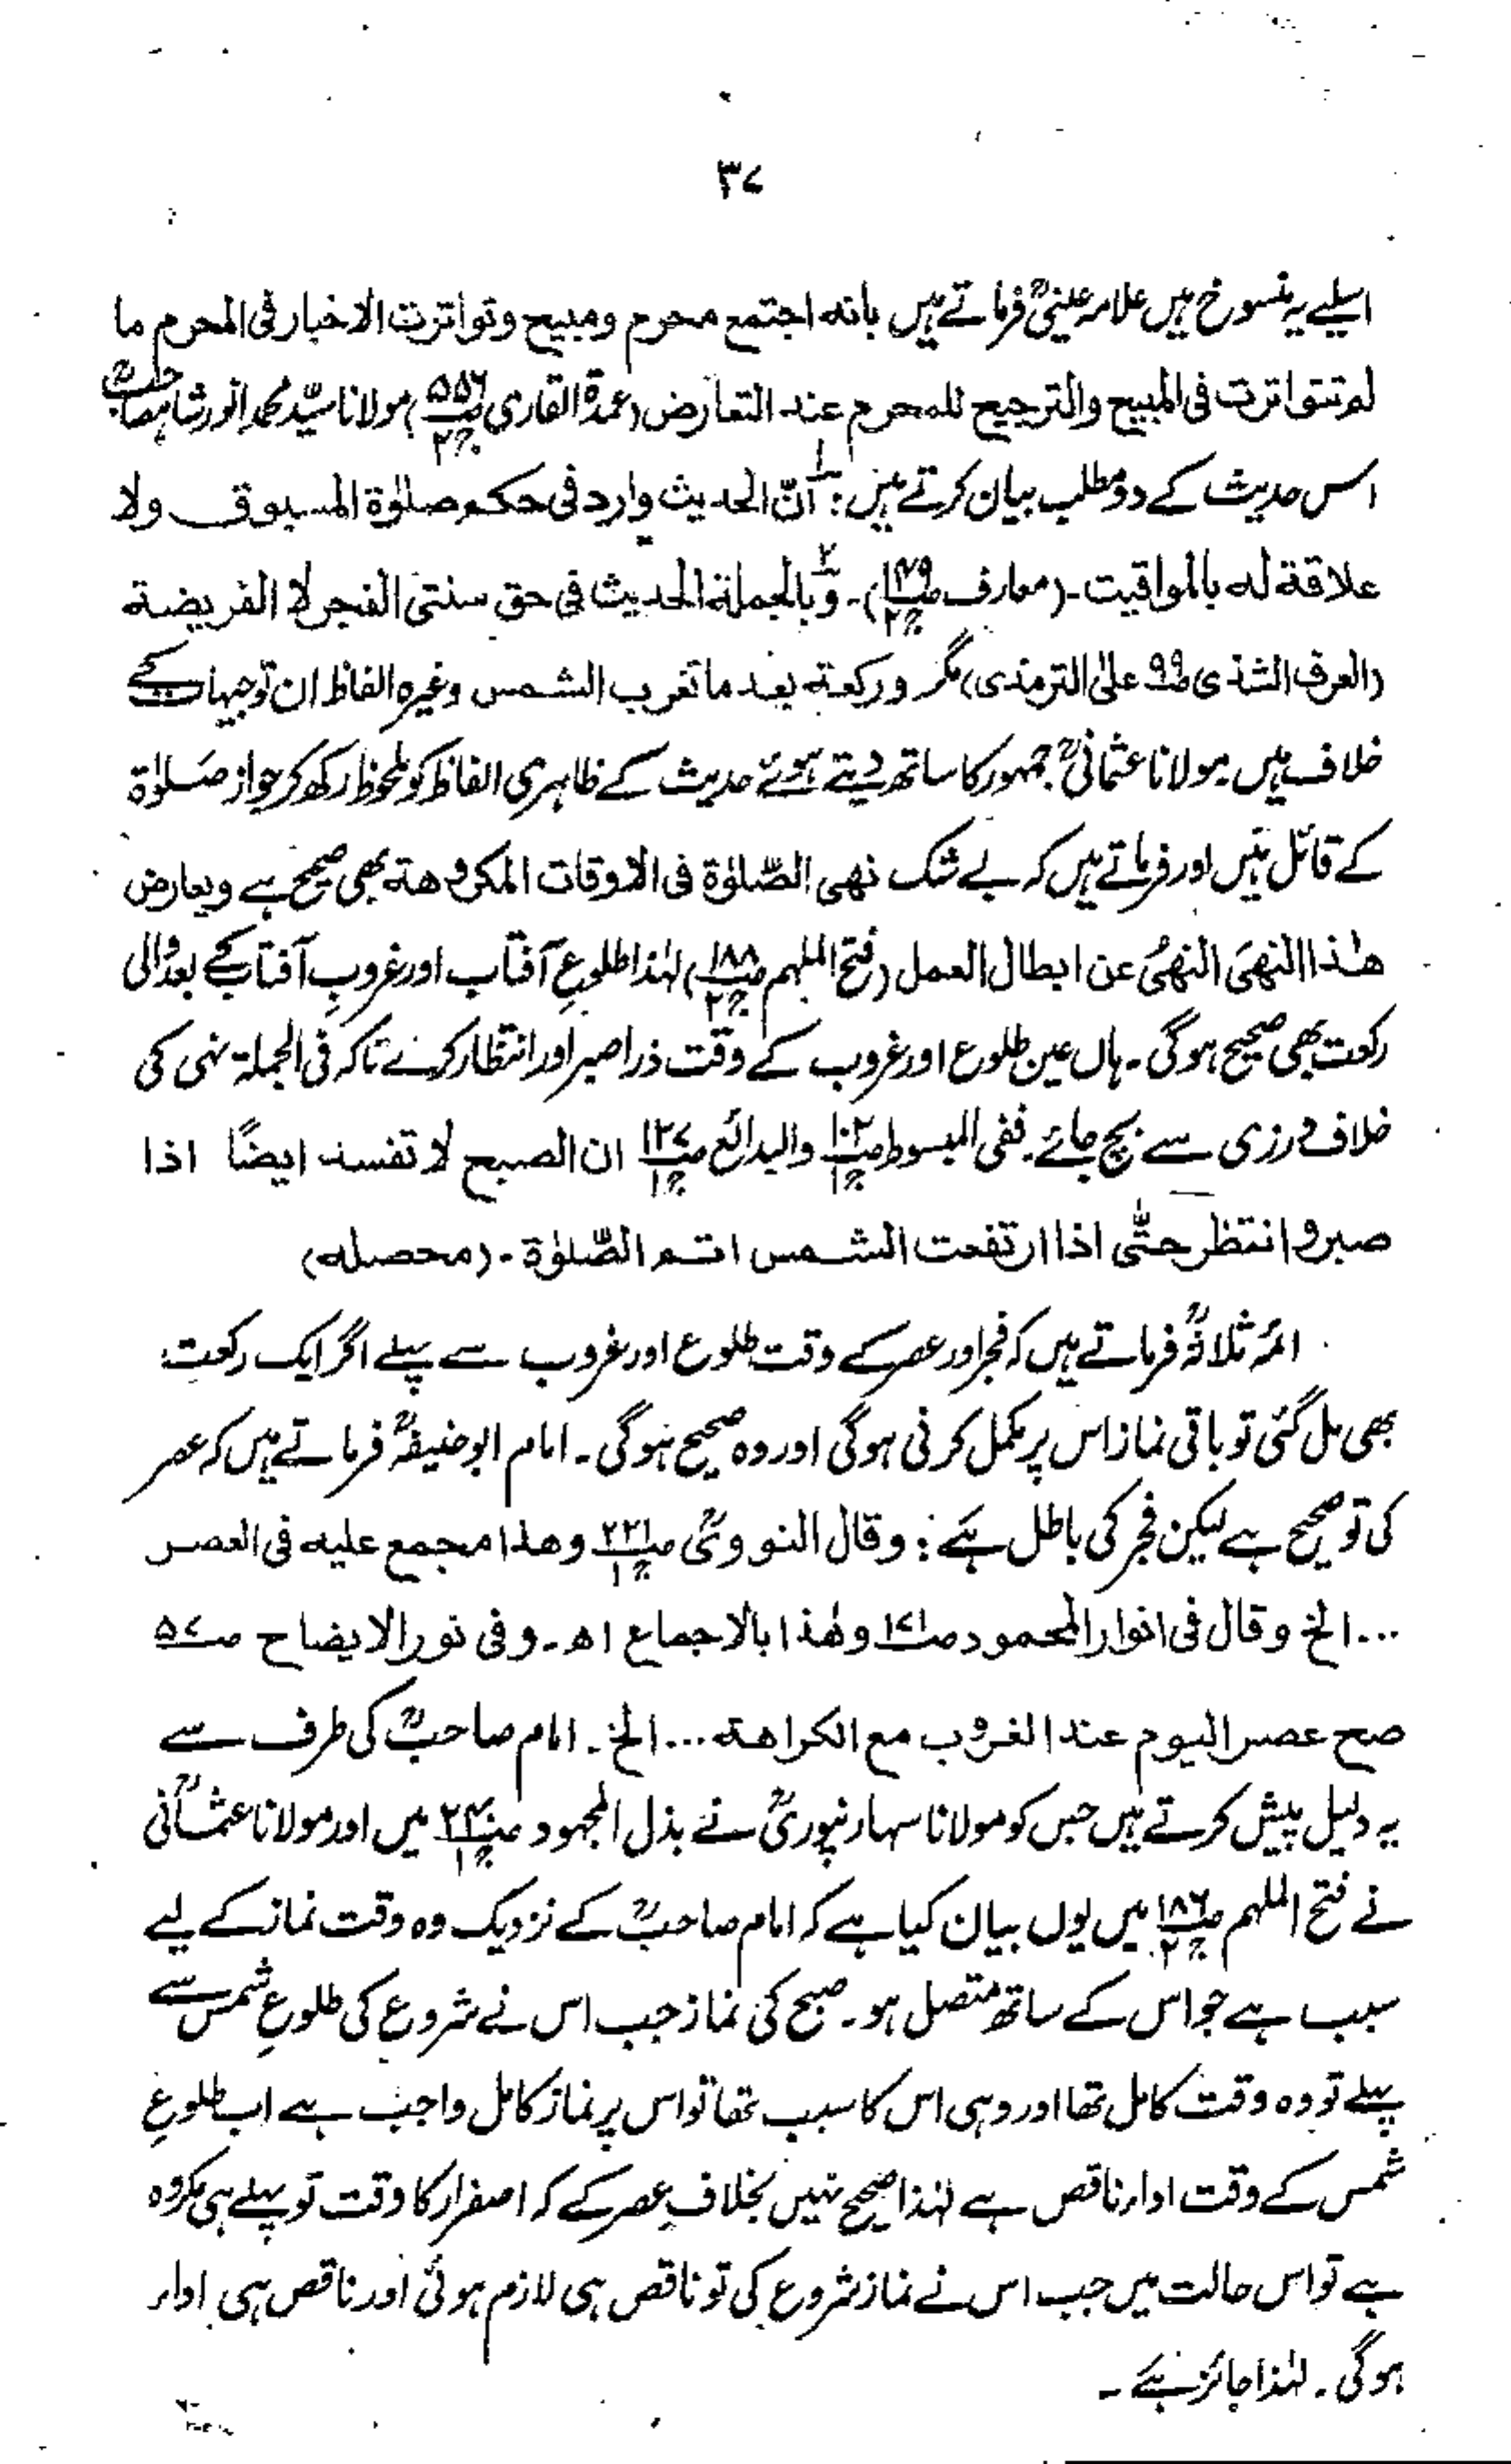 ۳۷
اسلیے یہ منسوخ ہیں علامہ عینیؒ فرماتے ہیں بانه اجتمع محرم ومبيح وتواترت الاخبار فى المحرم ما
لم تتواترت فى المبيح والترجيح للمحرم عند التعارض (عمدۃ القاری ص۵۵۶ ج۲) مولانا سیّد محمد انور شاہ صاحبؒ
اس حدیث کے دو مطلب بیان کرتے ہیں: ۱ انّ الحديث وارد فى حكم صلوٰة المسبوق ولا
علاقة له بالمواقيت۔ (معارف ص۱۴۹ ج۲)۔ ۲ وبالجملة الحديث فى حق سنتى الفجر لا الفريضة
(العرف الشذی ص۹۹ علیٰ الترمذی) مگر وركعة بعد ما تغرب الشمس وغیرہ الفاظ ان توجیہات کے
خلاف ہیں مولانا عثمانیؒ جمہور کا ساتھ دیتے ہوئے حدیث کے ظاہری الفاظ کو ملحوظ رکھ کر جواز صَلوٰة
کے قائل ہیں اور فرماتے ہیں کہ بے شک نهى الصّلوٰة فى الاوقات المكروهة بھی صحیح ہے ويعارض
هٰذا النهىَ النهىُ عن ابطال العمل (فتح الملہم ص۱۸۸ ج۲) لہٰذا طلوعِ آفتاب اور غروبِ آفتاب کے بعد والی
رکعت بھی صحیح ہوگی۔ ہاں عین طلوع اور غروب کے وقت ذرا صبر اور انتظار کرے تاکہ فی الجملۃ نہی کی
خلاف ورزی سے بچ جائے۔ ففى المبسوط ص۱۰۲ ج۱ والبدائع ص۱۲۷ ج۱ ان الصبح لا تفسد ايضًا اذا
صبر وانتظر حتّى اذا ارتفعت الشمس اتم الصّلوٰة۔ (محصله)
ائمہ ثلاثہؒ فرماتے ہیں کہ فجر اور عصر کے وقت طلوع اور غروب سے پہلے اگر ایک رکعت
بھی مل گئی تو باقی نماز اس پر مکمل کرنی ہوگی اور وہ صحیح ہوگی۔ امام ابو حنیفہؒ فرماتے ہیں کہ عصر
کی تو صحیح ہے لیکن فجر کی باطل ہے: وقال النووىؒ ص۲۲۱ ج۱ وهذا مجمع عليه فى العصر
...الخ وقال فى انوار المحمود ص۱۷۱ وهٰذا بالاجماع اھ۔ وفى نور الايضاح ص۵۷
صح عصر اليوم عند الغروب مع الكراهة...الخ۔ امام صاحبؒ کی طرف سے
یہ دلیل پیش کرتے ہیں جس کو مولانا سہارنپوریؒ نے بذل المجہود ص۲۴۰ ج۱ میں اور مولانا عثمانیؒ
نے فتح الملہم ص۱۸۶ ج۲ میں یوں بیان کیا ہے کہ امام صاحبؒ کے نزدیک وہ وقت نماز کے لیے
سبب ہے جو اس کے ساتھ متصل ہو۔ صبح کی نماز جب اس نے شروع کی طلوعِ شمس سے
پہلے تو وہ وقت کامل تھا اور وہی اس کا سبب تھا تو اس پر نماز کامل واجب ہے اب طلوعِ
شمس کے وقت اداء ناقص ہے لہٰذا صحیح نہیں بخلافِ عصر کے کہ اصفرار کا وقت تو پہلے ہی مکروہ
ہے تو اس حالت میں جب اس نے نماز شروع کی تو ناقص ہی لازم ہوئی اور ناقص ہی اداء
ہوگی۔ لہٰذا جائز ہے۔